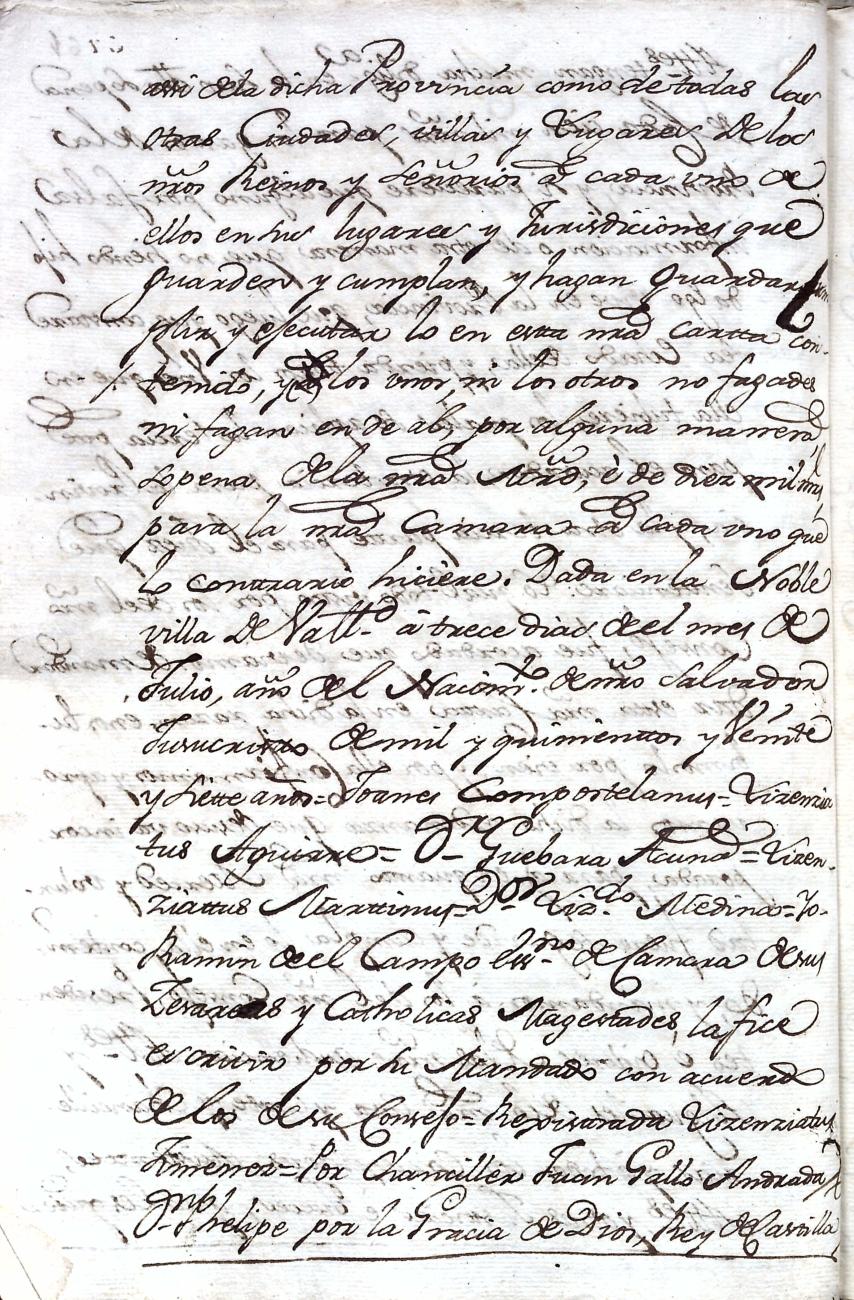 assi de la dicha Provincia como de todas las
otras Ciudades, villas y Lugares de los
nros Reinos y señorios â cada uno de
ellos en sus lugares y Jurisdiciones que
guarden y cumplan, y hagan Guardar, cum
plir y esecutar lo en esta nrâ cartta con-
tenido, y los unos, ni los otros no fagades
ni fagan en de al, por alguna manera,
sopena de la nrâ Mrd, è de diez mil mrs
para la nrâ Camara â cada uno que
lo contrario hiciere. Dada en la Noble
villa de Valld. â trece dias de el mes de
Julio, año del Nacimto. de nro salvador
Jesucristto de mil y quinienttos y Veinte
y siette años = Joanes Compostelanus = Lizenzia
tus Aguirre = Dr. Guebara Acuña = Lizen-
ziattus Marttinus = Dor. Lizdo. Medina = Yo
Ramin de el Campo essno. de Camara de sus
Zesareas y Catholicas Magestades, la fice
escrivir por su Mandado con acuerdo
de los de su Consejo = Rexistrada Lizenziatus
Ximenez = Por Chanciller Juan Gallo Andrada
Dn. Phelipe por la Gracia de Dios, Rey de Castilla